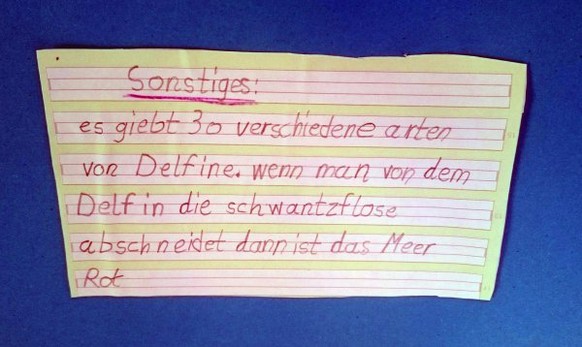 Sonstiges:
es giebt 30 verschiedene arten
von Delfine. wenn man von dem
Delfin die schwantzflose
abschneidet dann ist das Meer
Rot